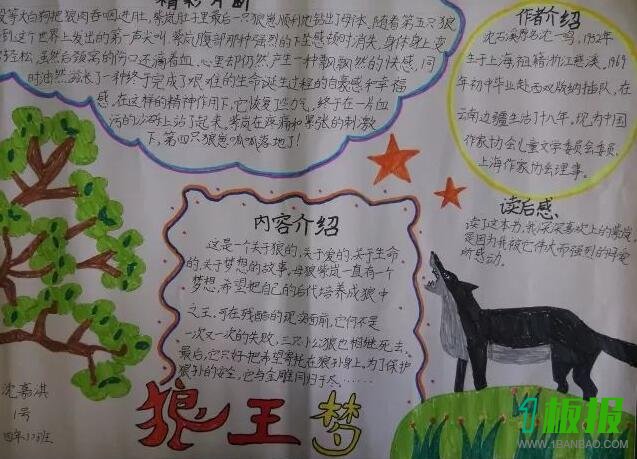 精彩片断
等大白狗把狼肉吞咽进肚,紫岚肚子里最后一只狼崽顺利地钻出了母体,随着第五只狼
到这个世界上发出的第一声尖叫,紫岚腹部那种强烈的下坠感顿时消失,身体身上变
轻松,虽然后颈窝的伤口还滴着血,心里却仍然产生一种飘飘然的快感,同
时油然滋长了一种终于完成了艰难的生命诞生过程的自豪感和幸福
感,在这样的精神作用下,它恢复了些力气,终于在一片血
污的沙砾上站了起来,紫岚在疼痛和紧张的刺激
下,第四只狼崽呱呱落地了!
作者介绍
沈石溪原名沈一鸣,1952年
生于上海,祖籍浙江慈溪,1969
年初中毕业赴西双版纳插队,在
云南边疆生活了十八年。现为中国
作家协会儿童文学委员会委员,
上海作家协会理事。
内容介绍
这是一个关于狼的,关于爱的,关于生命
的,关于梦想的故事,母狼紫岚一直有一个
梦想,希望把自己的后代培养成狼中
之王,可在残酷的现实面前,它们不是
一次又一次的失败,三只小公狼也相继死去,
最后,它只好把希望寄托在狼孙身上。为了保护
狼孙的安全,它与金雕同归于尽……
读后感
读了这本书,我深深喜欢上的紫岚,
是因为我被它伟大而强烈的母爱
所感动。
沈嘉淇
1号
四年17班
狼王梦
1板报
WWW.1BANBAO.COM